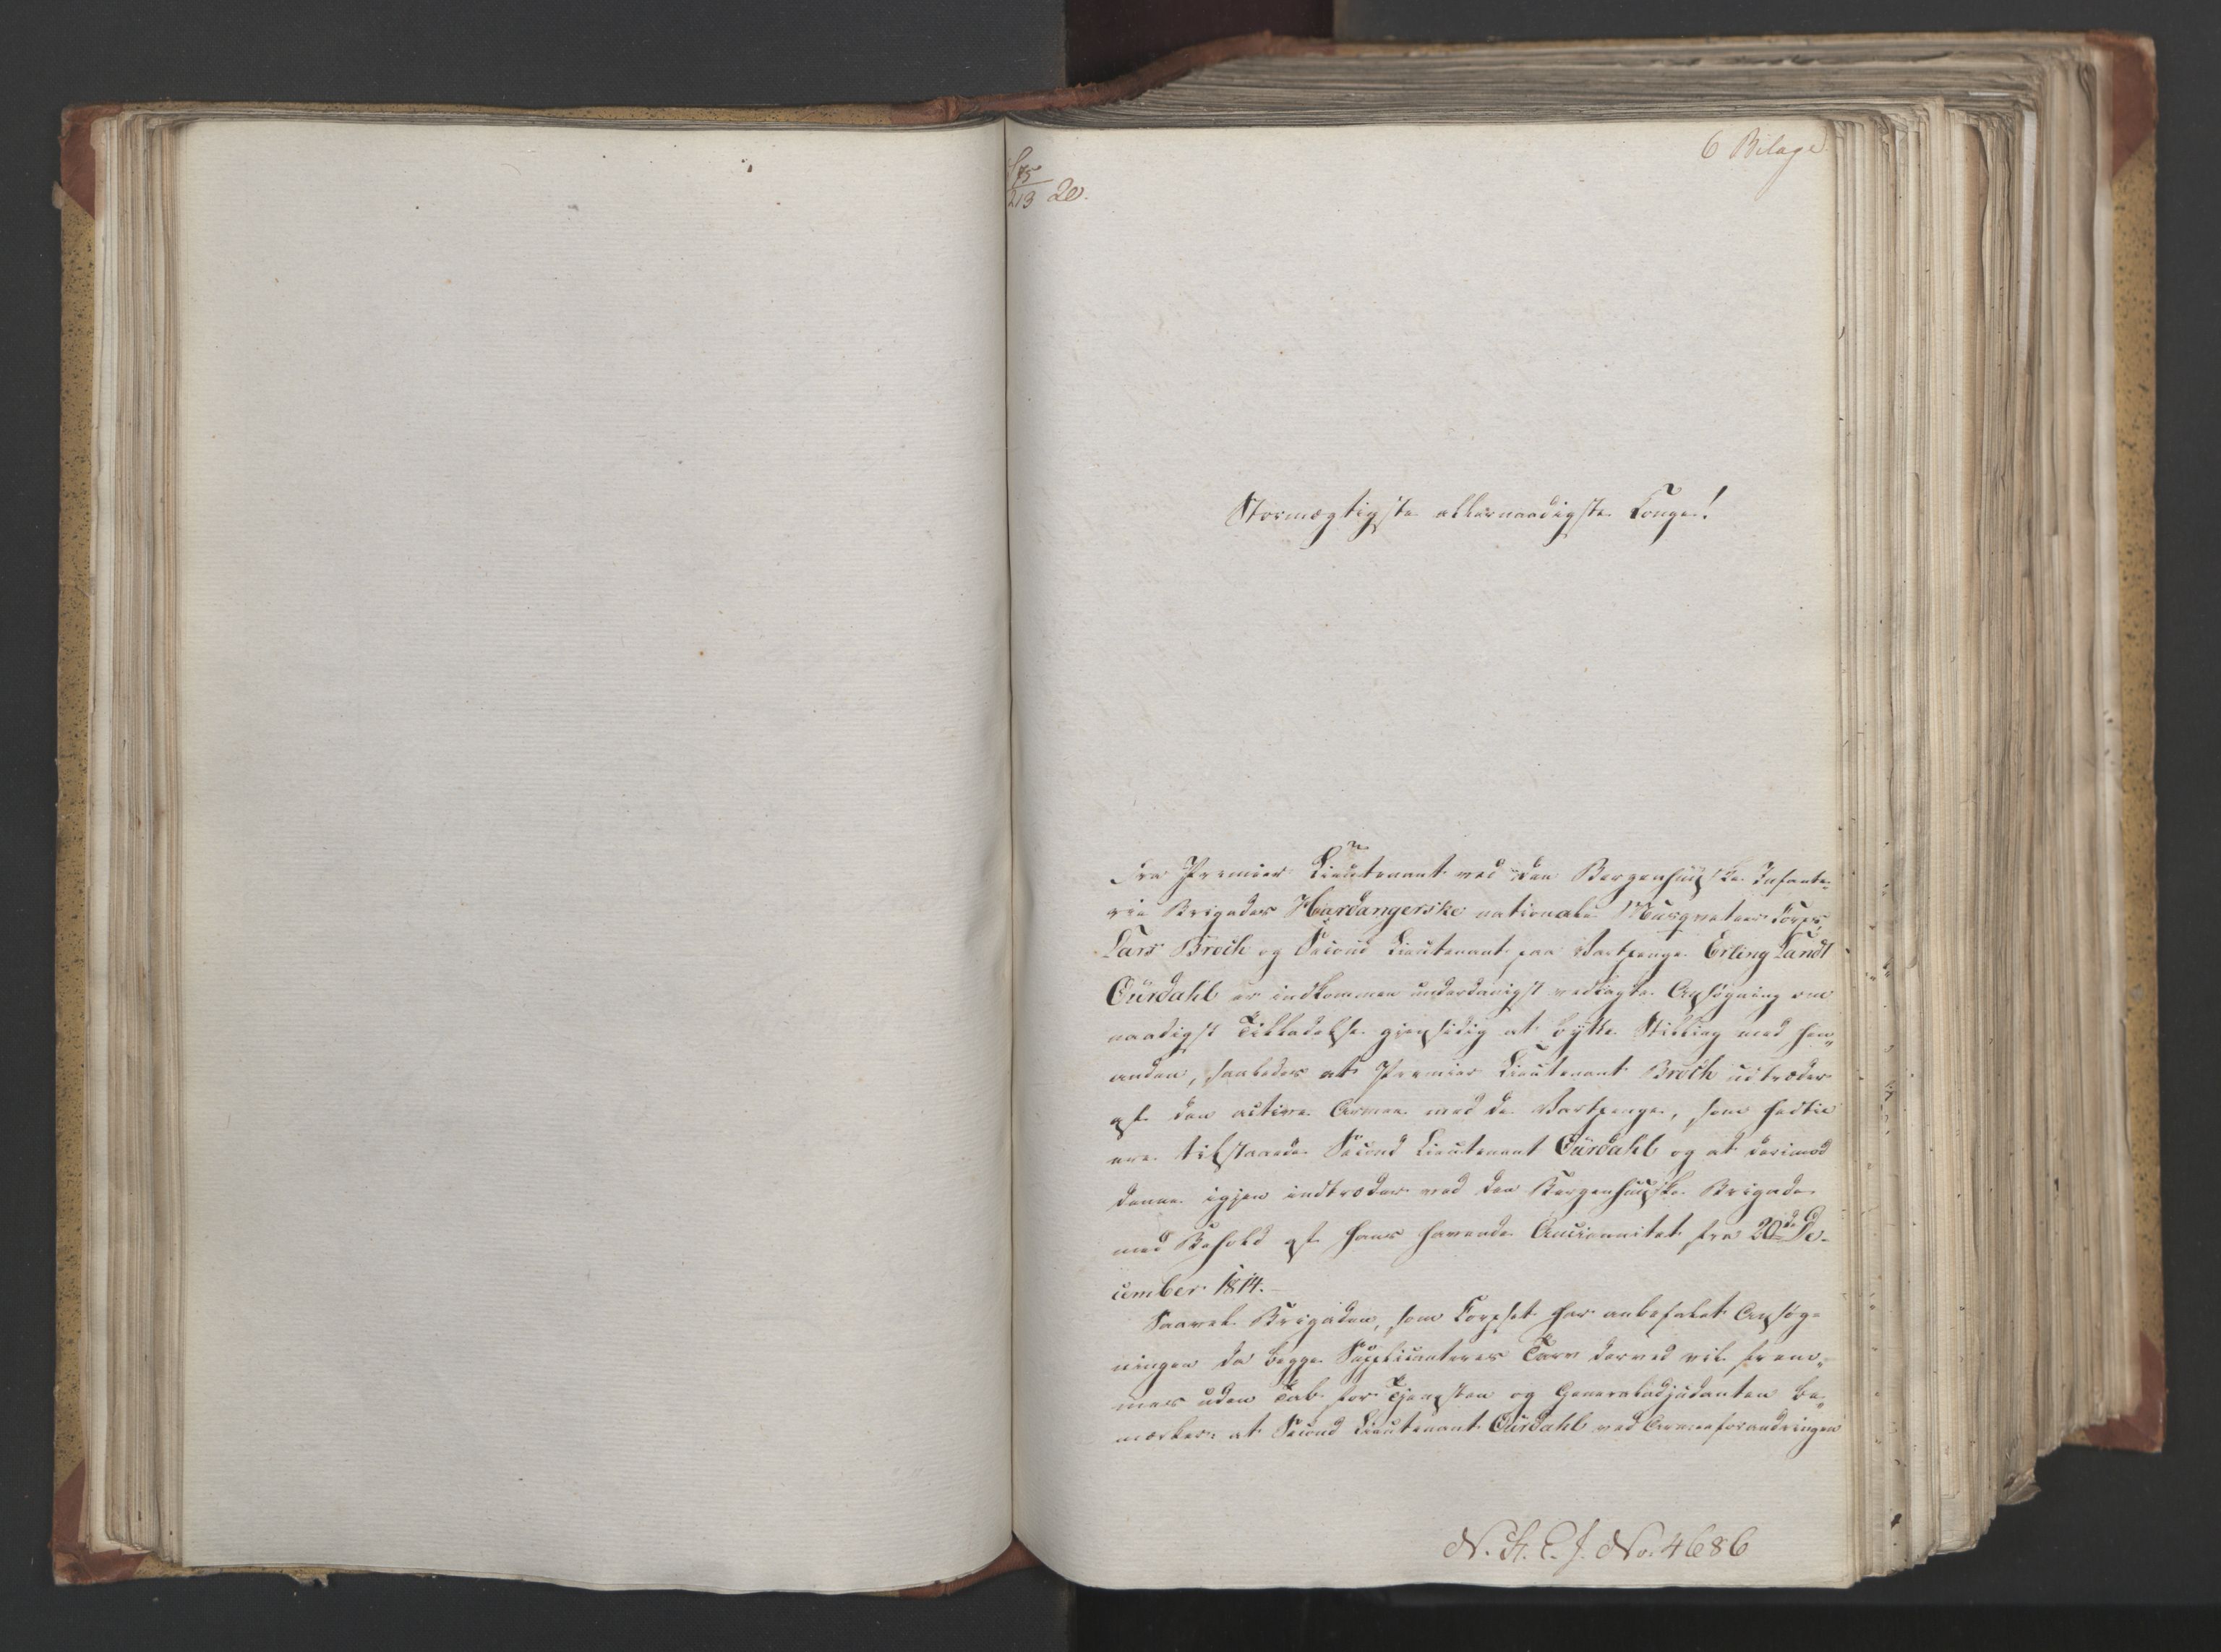 6 Bilage
S 75
213 20.
Stormægtigste allernaadigste Konge!
Fra Premier Lieutenant ved den Bergenhuusske Infante„
rie Brigades Hardangerske nationale Musqueteer Corps,
Lars Broch og Second Lieutenant paa Vartpenge Erling Landt
Ourdahl er indkommen underdanigst vedlagte Ansøgning om
naadigst Tilladelse gjensidig at bytte Stilling med hin„
anden, saaledes at Premier Lieutenant Broch udtræder
af den active Armee med de Vartpenge, som hidtil
ere tilstaaede Second Lieutenant Ourdahl og at derimod
denne igjen indtræder ved den Bergenhuusske Brigade
med Behold af hans havende Anciennitet fra 20de De-
cember 1814.
Saavel Brigaden, som Corpset har anbefalet Ansøg-
ningen da begge Supplicanteres Tarv derved vil frem„
mes uden Tab for Tjenesten og Generaladjudanten be„
mærker: at Second Lieutenant Ourdahl ved Armeeforandringen
N. St. E. J. No. 4686